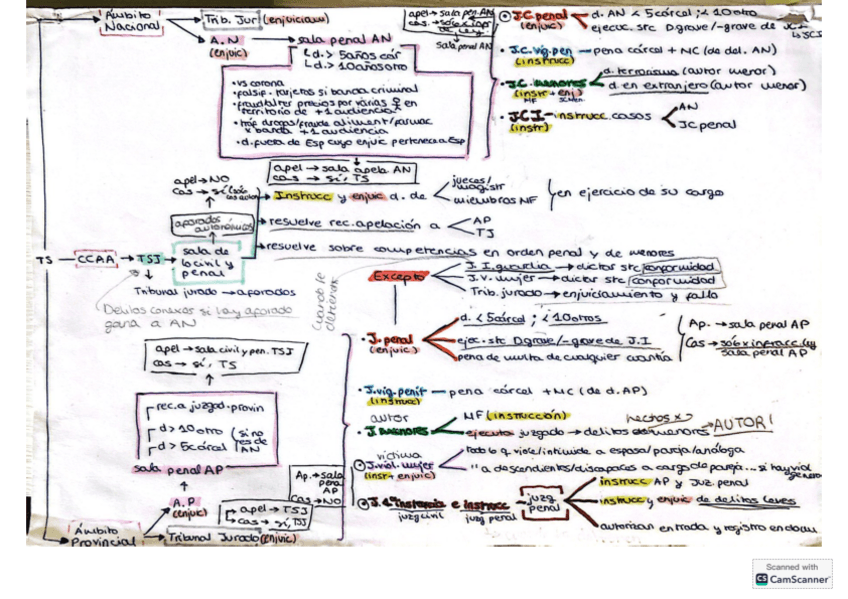 Ámbito Nacional
Trib. Jur (enjuician)
A.N (enjuic)
sala penal AN
d. > 5años cár
d. > 10 años otro
apel → sala pen. AN
cas. → sólo x infr de ley
sala penal AN
J.C penal (enjuic)
d. AN < 5 cárcel ; < 10 otro
ejecuc. stc D grave/-grave de
↳ JCI
J.C. vig. pen (instrucc)
pena cárcel + NC (de del. AN)
J.C. menores (instr + enj)
MF
d. terrorismo (autor menor)
d en extranjero (autor menor)
JCI - instrucc. casos (instr)
AN
JC penal
• vs corona
• falsif. tarjetas si banda criminal
• fraud/alter precios por varias en territorio de +1 audiencia
• tráf drogas/fraude aliment/farmac x banda +1 audiencia
• d. fuera de Esp cuyo enjuic pertenece a Esp
apel → sala apela AN
cas → sí, TS
apel → NO
cas → sí (solo
aforados autonómicos
TS
CCAA
TSJ
sala de lo civil y penal
Instrucc y enjuic d. de
jueces/magistr
miembros MF
en ejercicio de su cargo
resuelve rec. apelación a
AP
TJ
resuelve sobre competencias en orden penal y de menores
Tribunal jurado → aforados
Delitos conexos si hay aforado gana a AN
Excepto
J. I. guardia → dictar stc conformidad
J. v. mujer → dictar stc conformidad
Trib. jurado → enjuiciamiento y fallo
J. penal (enjuic)
d. < 5 cárcel ; < 10 otros
ejec. stc D grave/-grave de J.I
pena de multa de cualquier cuantía
Ap. → sala penal AP
Cas → sólo x infracc. ley
sala penal AP
apel → sala civil y pen. TSJ
cas → sí, TS
J. vig. penit (instrucc)
pena cárcel + NC (de d. AP)
autor
J. menores
MF (instrucción)
ejecuta juzgado → delitos de menores
hechos x
AUTOR!
rec. a juzgad. provin
d > 10 otro
d > 5 cárcel
(si no es de AN
sala penal AP
víctima
J. viol. mujer (instr + enjuic)
todo lo q viole/intimide a esposa/pareja/análoga
" a descendientes/discapaces a cargo de pareja... si hay viol genero
Ap. → sala penal AP
Cas → NO
J. 1ª instancia e instrucc
juzg civil
juzg penal
juzg penal
instrucc AP y Juz. penal
instrucc y enjuic de delitos leves
autorizan entrada y registro en
A.P (enjuic)
apel → TSJ
cas → sí, TS
Ámbito Provincial
Tribunal Jurado (enjuic)
Scanned with
CS CamScanner